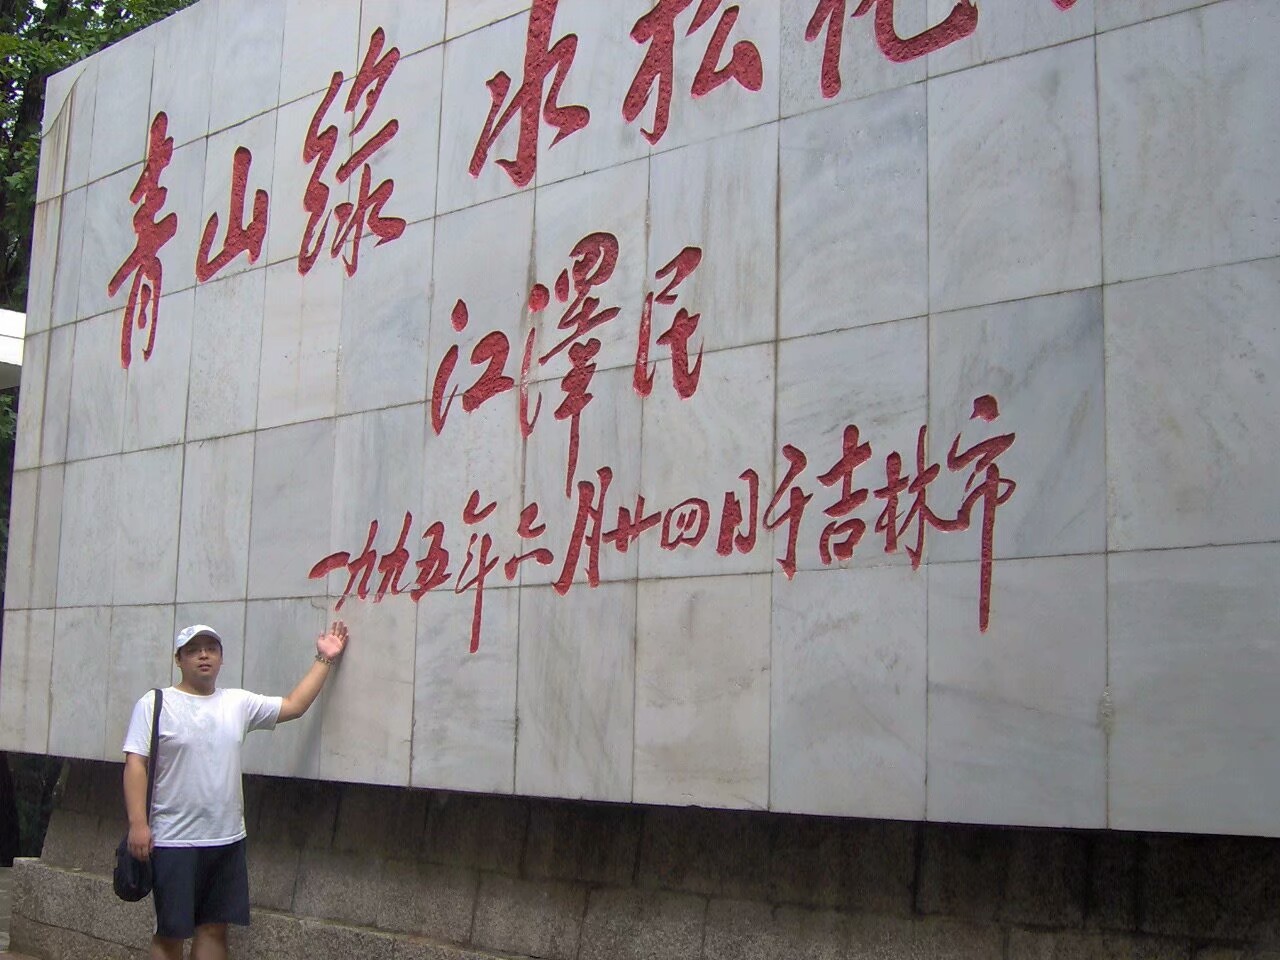 青山綠水松花
江澤民
一九九五年六月廿四日于吉林市